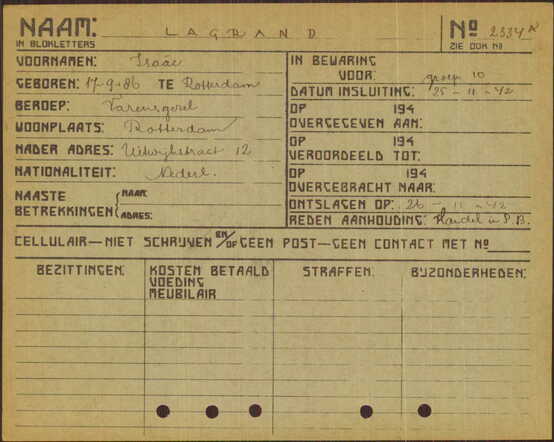 NAAM: LAGRAND
IN BLOKLETTERS
Nº 2334
ZIE OOK Nº
VOORNAMEN: Isaac
GEBOREN: 17-9-86 TE Rotterdam
BEROEP:
WOONPLAATS: Rotterdam
NADER ADRES: 12
NATIONALITEIT: Nederl.
NAASTE BETREKKINGEN { NAAM:
ADRES:
IN BEWARING
VOOR: groep 10
DATUM INSLUITING: 25-11-42
OP 194
OVERGEGEVEN AAN:
OP 194
VEROORDEELD TOT:
OP 194
OVERGEBRACHT NAAR:
ONTSLAGEN OP: 26-11-42
REDEN AANHOUDING: Handel in P.B.
CELLULAIR—NIET SCHRIJVEN EN/OF GEEN POST—GEEN CONTACT MET Nº
BEZITTINGEN: KOSTEN BETAALD STRAFFEN: BIJZONDERHEDEN:
VOEDING
MEUBILAIR